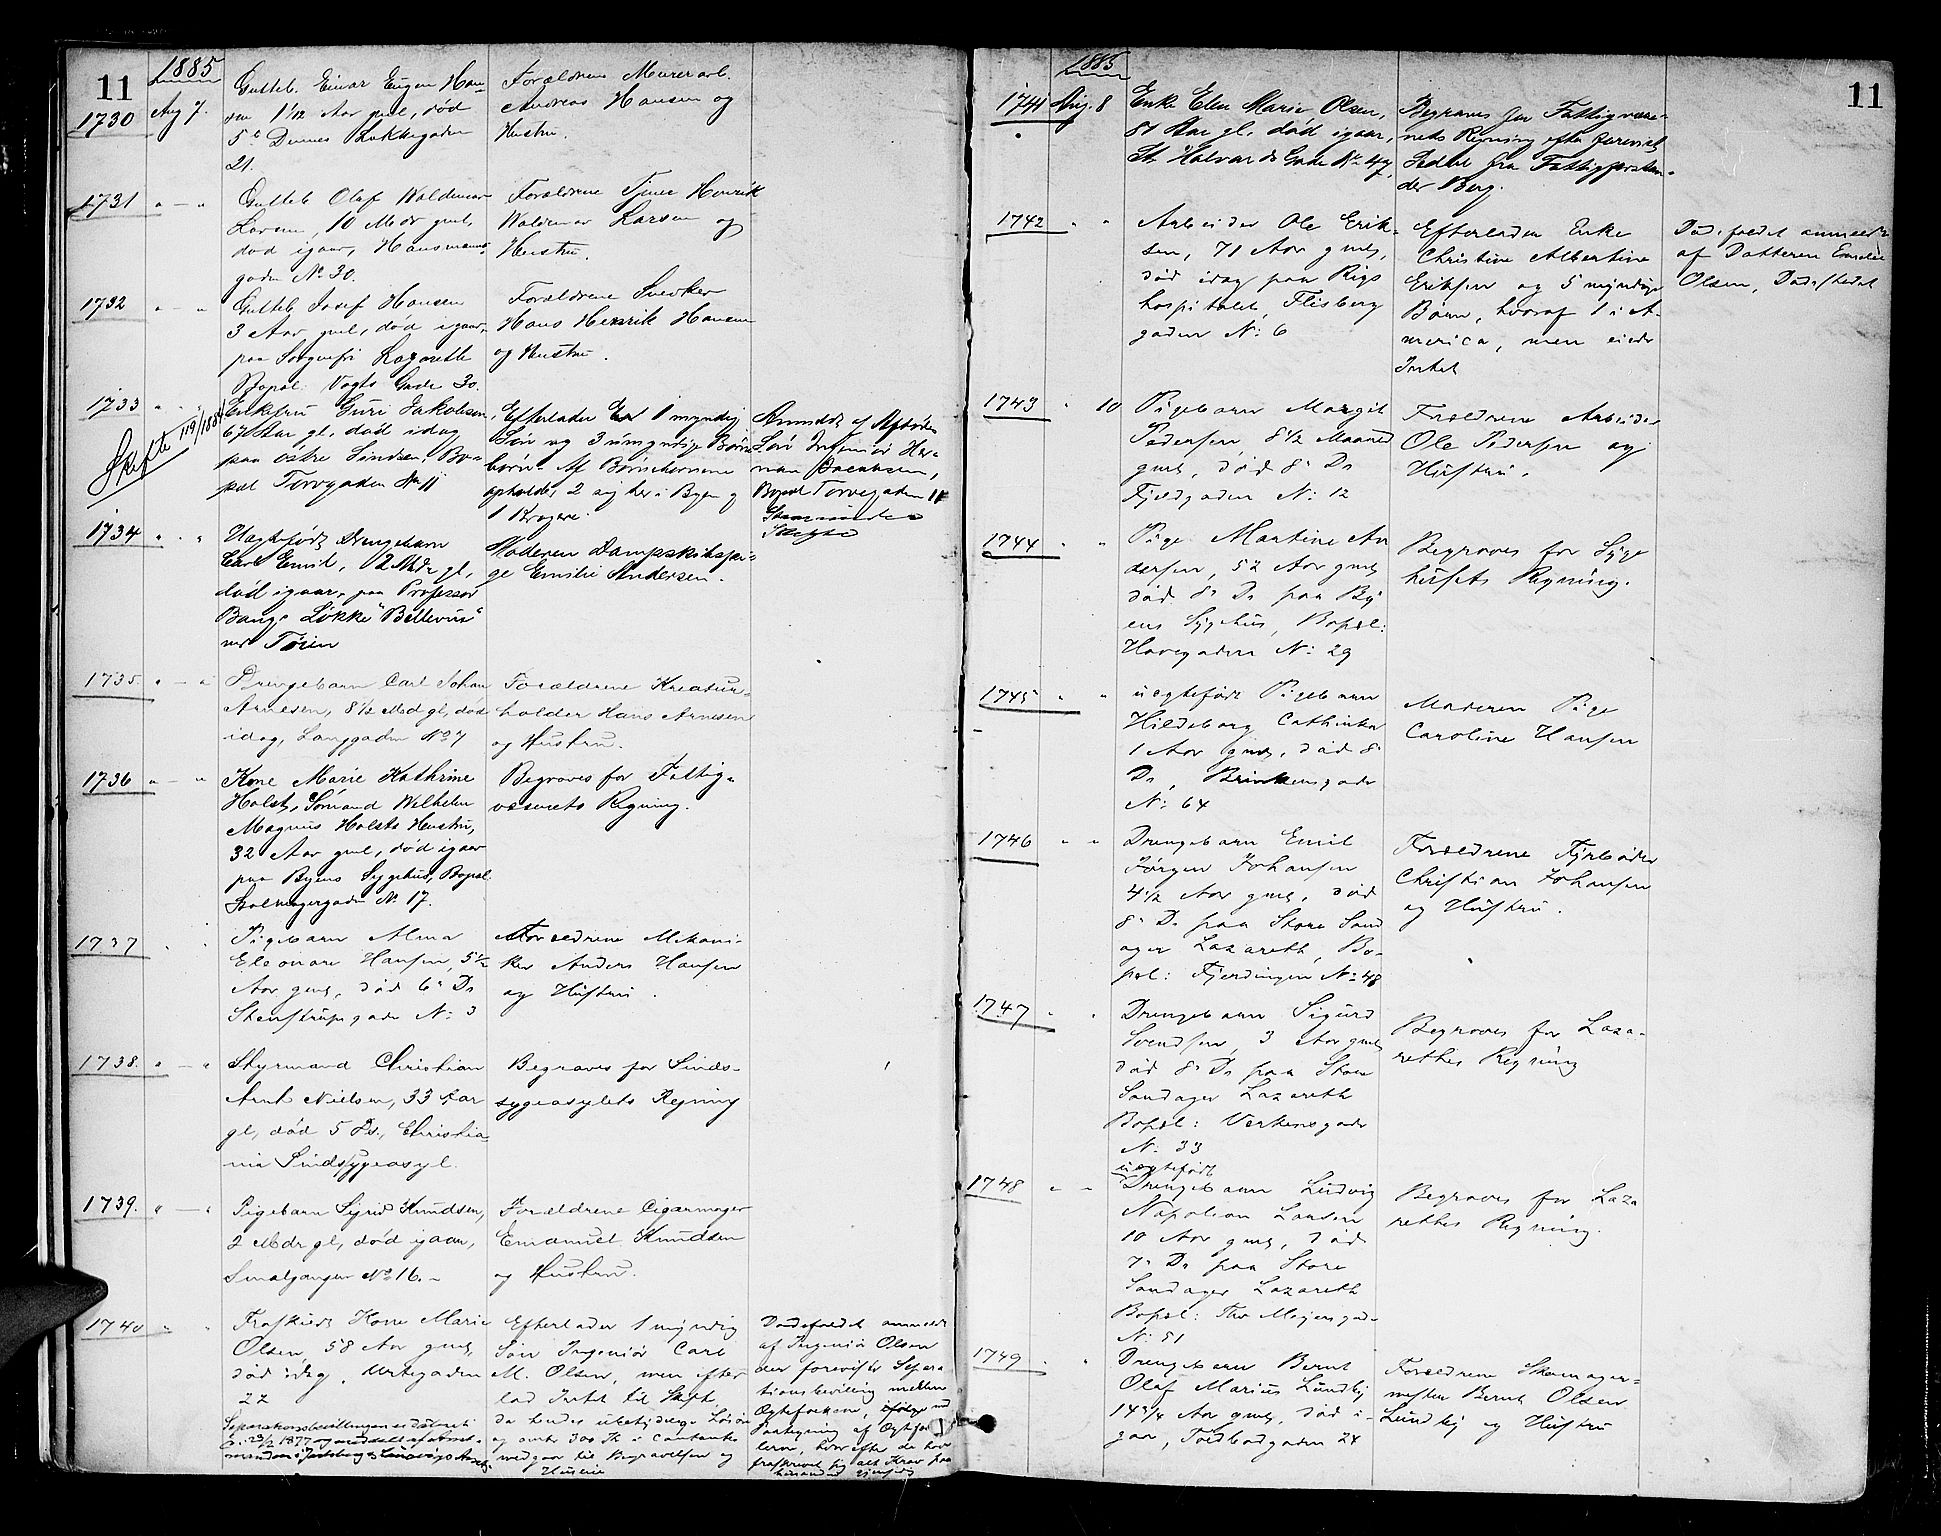 11
1885
1730 Aug 7.
Gutteb. Einar Eugen Han-
sen 1 1/12 Aar gml, død
5te Dennes Lakkegaden
21.
Forældrene Murerarb.
Andreas Hansen og
Hustru.
1731 " — "
Gutteb Olaf Waldemar
Larsen, 10 Mdr gml,
død igaar, Hausmanns-
gaden No 30.
Forældrene Tjener Henrik
Waldemar Larsen og
Hustru.
1732 " — "
Gutteb Josef Hansen
3 Aar gml, død igaar,
paa Sorgenfri Lazareth
Bopæl Vogts Gade 30.
Forældrene Snedker
Hans Henrik Hansen
og Hustru.
1733 " . "
Skifte 119/1884
Enkefru Guri Jakobsen,
67 Aar gl, død idag
paa østre Sindsen, Bo-
pæl Torvgaden No 11
Efterlader 1 myndig
Søn og 3 umyndige Børne-
børn. Af Børnebørnene
opholde 2 sig her i Byen og
1 Kragerø.
Anmeldt af Afdødes
Søn Ingeniør Her-
man Jacobsen,
Bopæl Torvegaden 11
Skifte
1734 " . "
Uægtefødt Drengebarn
Carl Emil, 2 Mdr gl,
død igaar, paa Professor
Bangs Løkke "Bellevue"
ved Tøien
Moderen Dampskibspi-
ge Emilie Andersen.
1735 " — "
Drengebarn Carl Johan
Arnesen, 8 1/2 Md gl, død
idag, Langgaden No 7
Forældrene Kreatur-
holder Hans Arnesen
og Hustru.
1736 " — "
Kone Marie Kathrine
Holst, Sømand Wilhelm
Magnus Holsts Hustru,
32 Aar gml, død igaar
paa Byens Sygehus, Bopæl
Stolmagergaden No 17.
Begraves for Fattig-
væsenets Regning.
1737 . "
Pigebarn Alma
Eleonore Hansen, 5 1/2
Aar gml, død 6te Ds
Stenstrupsgade No: 3
Forældrene Mekani-
ker Anders Hansen
og Hustru.
1738. " — "
Styrmand Christian
Arnt Nielsen, 33 Aar
gl, død 5 Ds, Christia-
nia Sindssygeasyl.
Begraves for Sinds-
sygeasylets Regning
1739. " — "
Pigebarn Sigrid Knudsen,
2 Mdr gl, død igaar,
Smalgangen No 16.
Forældrene Cigarmager
Emanuel Knudsen
og Hustru.
1740 " "
Fraskildt Kone Marie
Olsen, 58 Aar gml,
død idag, Urtegaden
22
Separationsbevillingen er dateret
23/2 1877
Efterlader 1 myndig
Søn Ingeniør Carl
M. Olsen, men efter
lod Intet til Skifte,
da hendes ubetydelige Løsøre
og omtr 300 Kr i Contante
medgaar til Begravelsen og
Husleie
Dødsfaldet anmeldt
af Ingeniør Olsen
der foreviste Separa
tionsbevilling mellem
Ægtefolkene,
Paategning af Ægtefol
kene, hvorefter de have
frasrevet sig alt Krav paa
hinanden
11
1885
1741 Aug. 8
Enke Elen Marie Olsen,
81 Aar gl. død igaar,
St. Halvards Gade No 47.
Begraves for Fattigvæse-
nets Regning efter forevist
Seddel fra Fattigforstan-
der Berg.
1742 " "
Arbeider Ole Erik-
sen, 71 Aar gml,
død idag paa Rigs
hospitalet, Flisberg
gaden No: 6
Efterlader Enke
Christine Albertine
Eriksen og 5 myndige
Børn, hvoraf 1 i A-
merica, men eier
Intet
Dødsfaldet anmeldt
af Datteren Emilie
Olsen, Dødsstedet
1743 " 10
Pigebarn Margit
Pedersen 8 1/2 Maaned
gml, død 8de Ds
Fjeldgaden No: 12
Forældrene Arbeider
Ole Pedersen og
Hustru.
1744 " "
Pige Martine An
dersen, 52 Aar gml
død 8de Ds paa By
ens Sygehus, Bopæl:
Havegaden No: 29
Begraves for Syge
husets Regning.
1745 " "
uægtefødt Pigebarn
Hildeborg Cathinka
1 Aar gml, død 8de
Ds, Brinkensgade
No: 64
Moderen Pige
Caroline Hansen
1746 " "
Drengebarn Emil
Jørgen Johansen
4 1/2 Aar gml, død
8de Ds paa Store Sand
ager Lazareth, Bo-
pæl: Fjerdingen No: 48
Forældrene Fyrbøder
Christian Johansen
og Hustru.
1747 " "
Drengebarn Sigurd
Svendsen 3 Aar gml
død 8de Ds paa Store
Sandager Lazareth
Bopæl: Verkensgade
No: 33
Begraves for Laza-
rethes Regning
1748 " "
uægtefødt
Drengebarn Ludvig
Napoleon Larsen
10 Aar gml, død
7de Ds paa Store
Sandager Lazareth
Bopæl: Thv Meyersgade
No: 51
Begraves for Laza
rethes Regning.
1749 . "
Drengebarn Bernt
Olaf Marius Lundby
14 3/4 Aar gml, død i-
gaar, Toldbodgaden 24
Forældrene Skomager-
mester Bernt Olsen
Lundby og Hustru